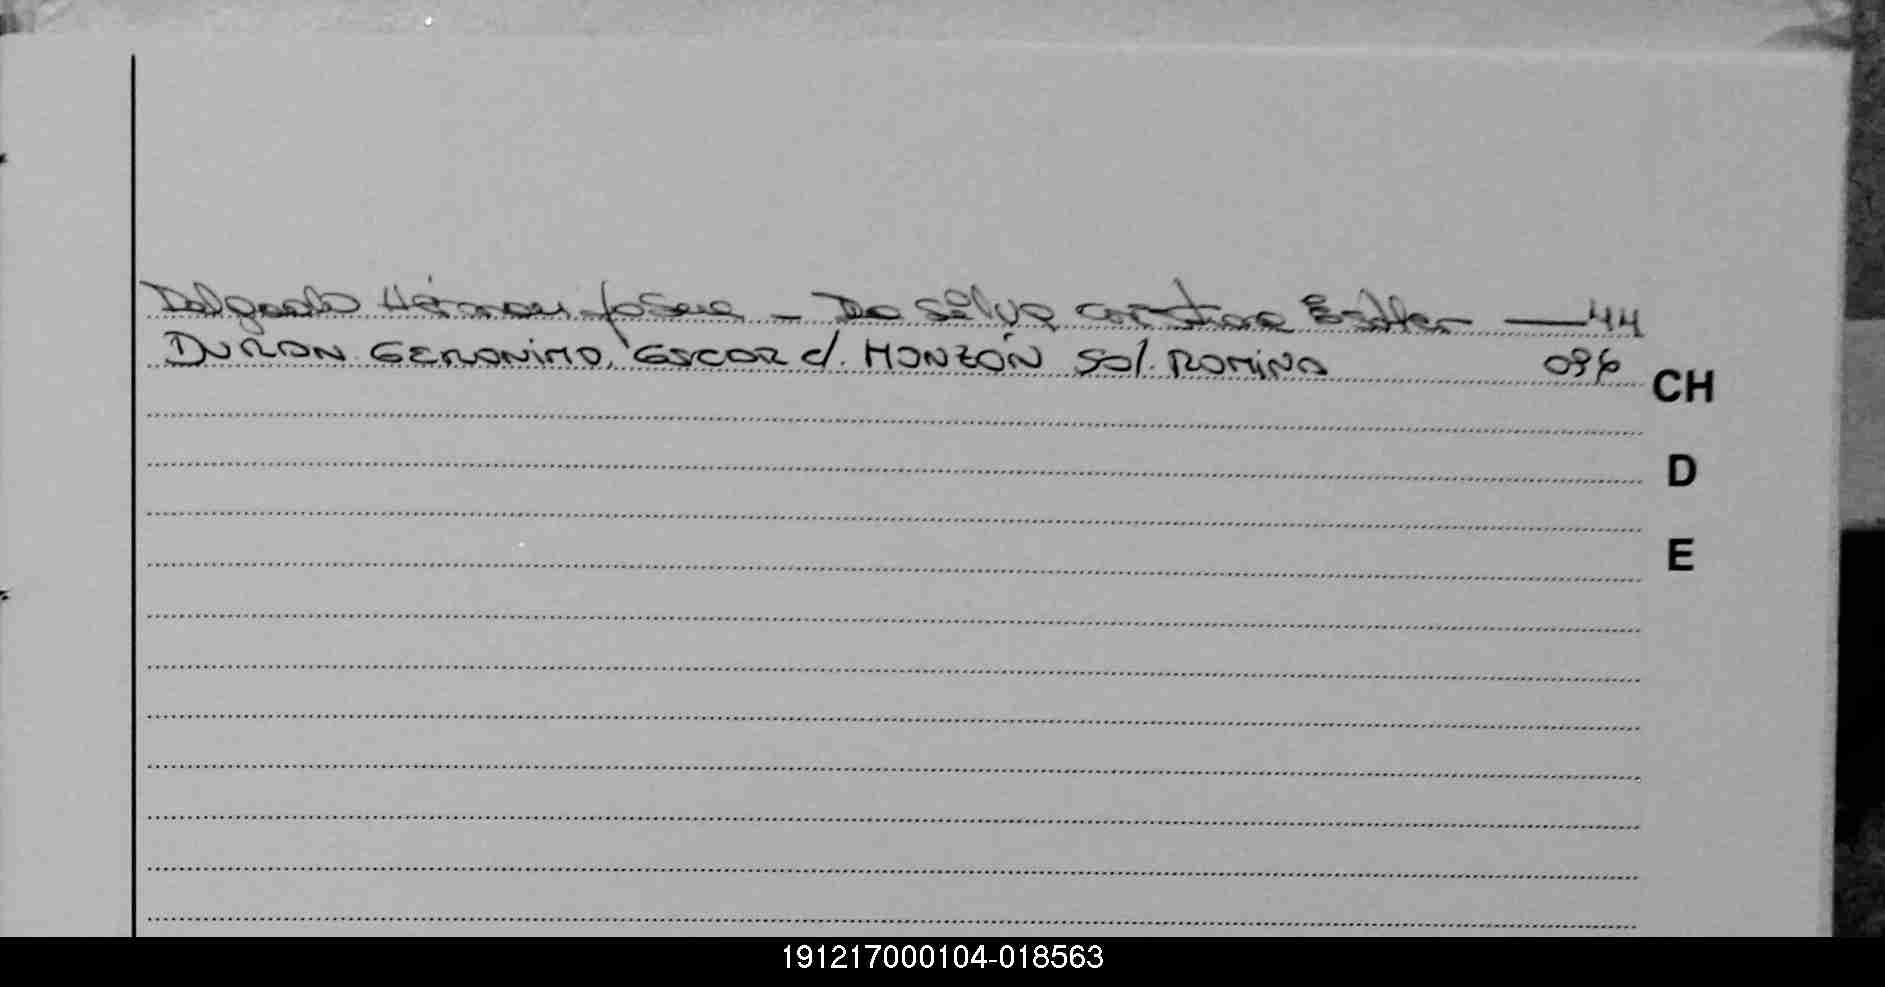 Delgado Hernan Josue - Da Silva Cristina Esther — 44
DURAN GERONIMO, ESCOR c/. MONZÓN SOL ROMINA 096
CH
D
E
191217000104-018563